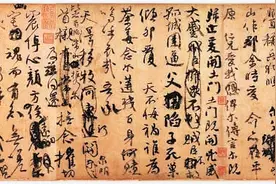 山郡余時受命亦在平
原仁兄愛我俾爾傳言爾既
歸止爰開土門土門既開凶威
大蹙賊臣不救
孤城圍逼父陷子死巢
傾卵覆天不悔禍誰為
荼毒念爾遘殘百身何贖
嗚呼哀哉吾承
天澤移牧河關泉明
首櫬及茲同還撫念摧切
震悼心顏方俟遠日